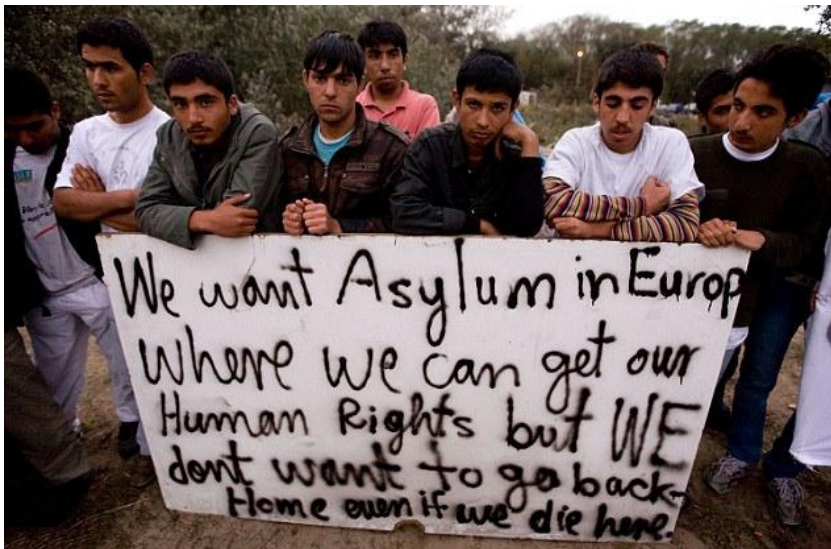 We want Asylum in Europ
Where we can get our
Human Rights but WE
dont want to go back
Home even if we die here.